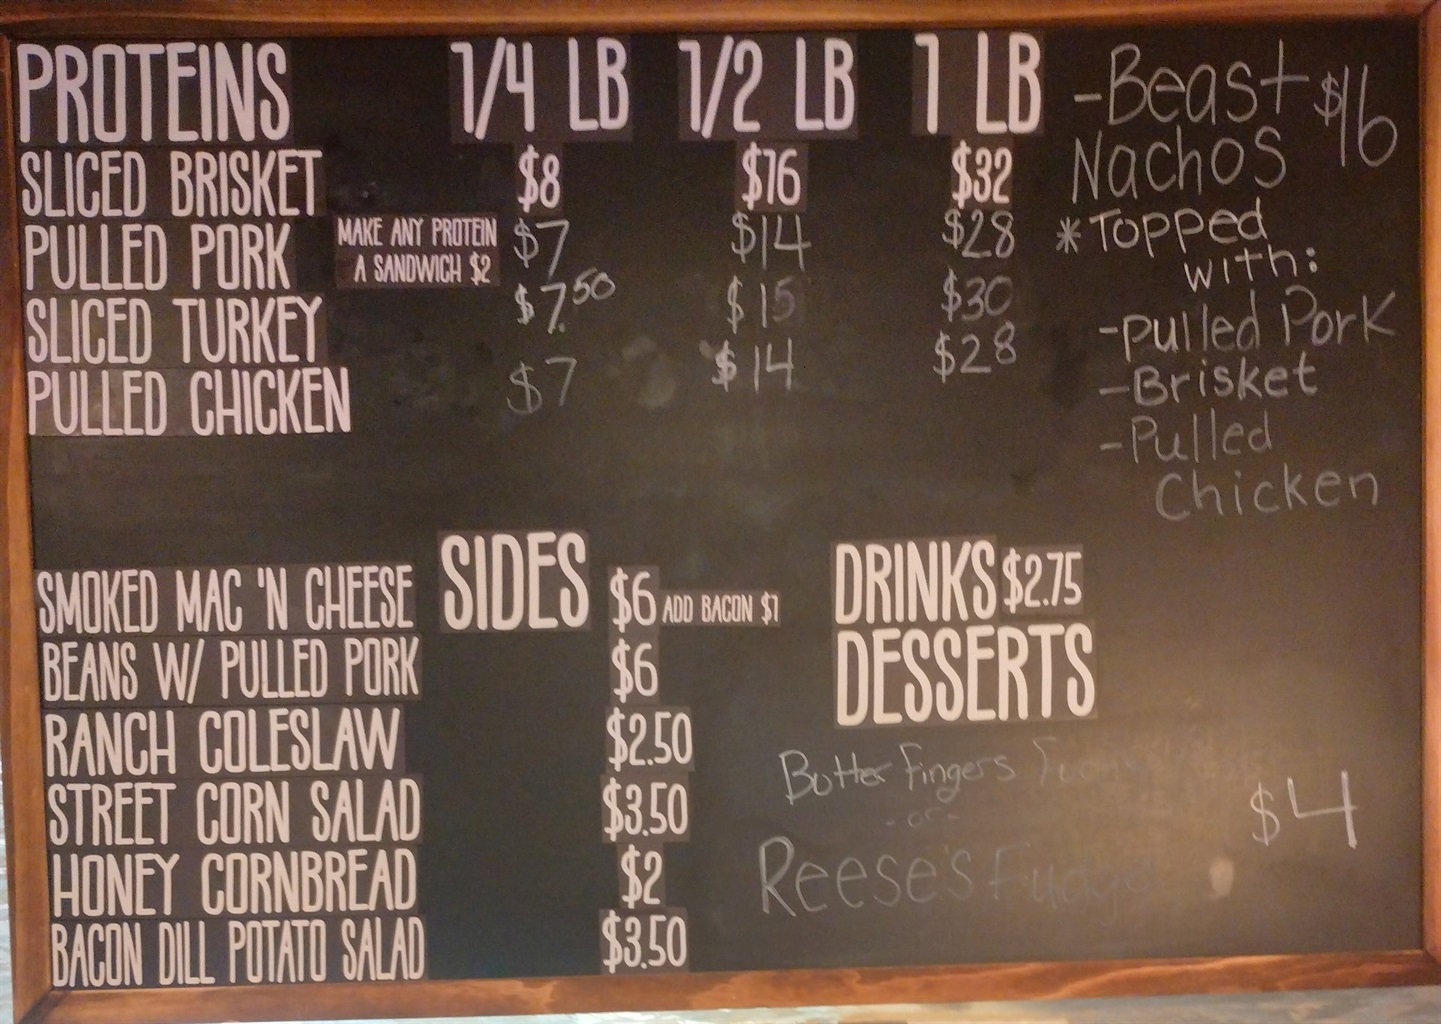 PROTEINS 1/4 LB 1/2 LB 1 LB
SLICED BRISKET $8 $16 $32
PULLED PORK MAKE ANY PROTEIN A SANDWICH $2 $7 $14 $28
SLICED TURKEY $7.50 $15 $30
PULLED CHICKEN $7 $14 $28
-Beast $16
Nachos
*Topped
with:
-Pulled Pork
-Brisket
-Pulled
Chicken
SIDES
SMOKED MAC 'N CHEESE $6 ADD BACON $1
BEANS W/ PULLED PORK $6
RANCH COLESLAW $2.50
STREET CORN SALAD $3.50
HONEY CORNBREAD $2
BACON DILL POTATO SALAD $3.50
DRINKS $2.75
DESSERTS
Butter Fingers Fudge
-or-
Reese's Fudge
$4